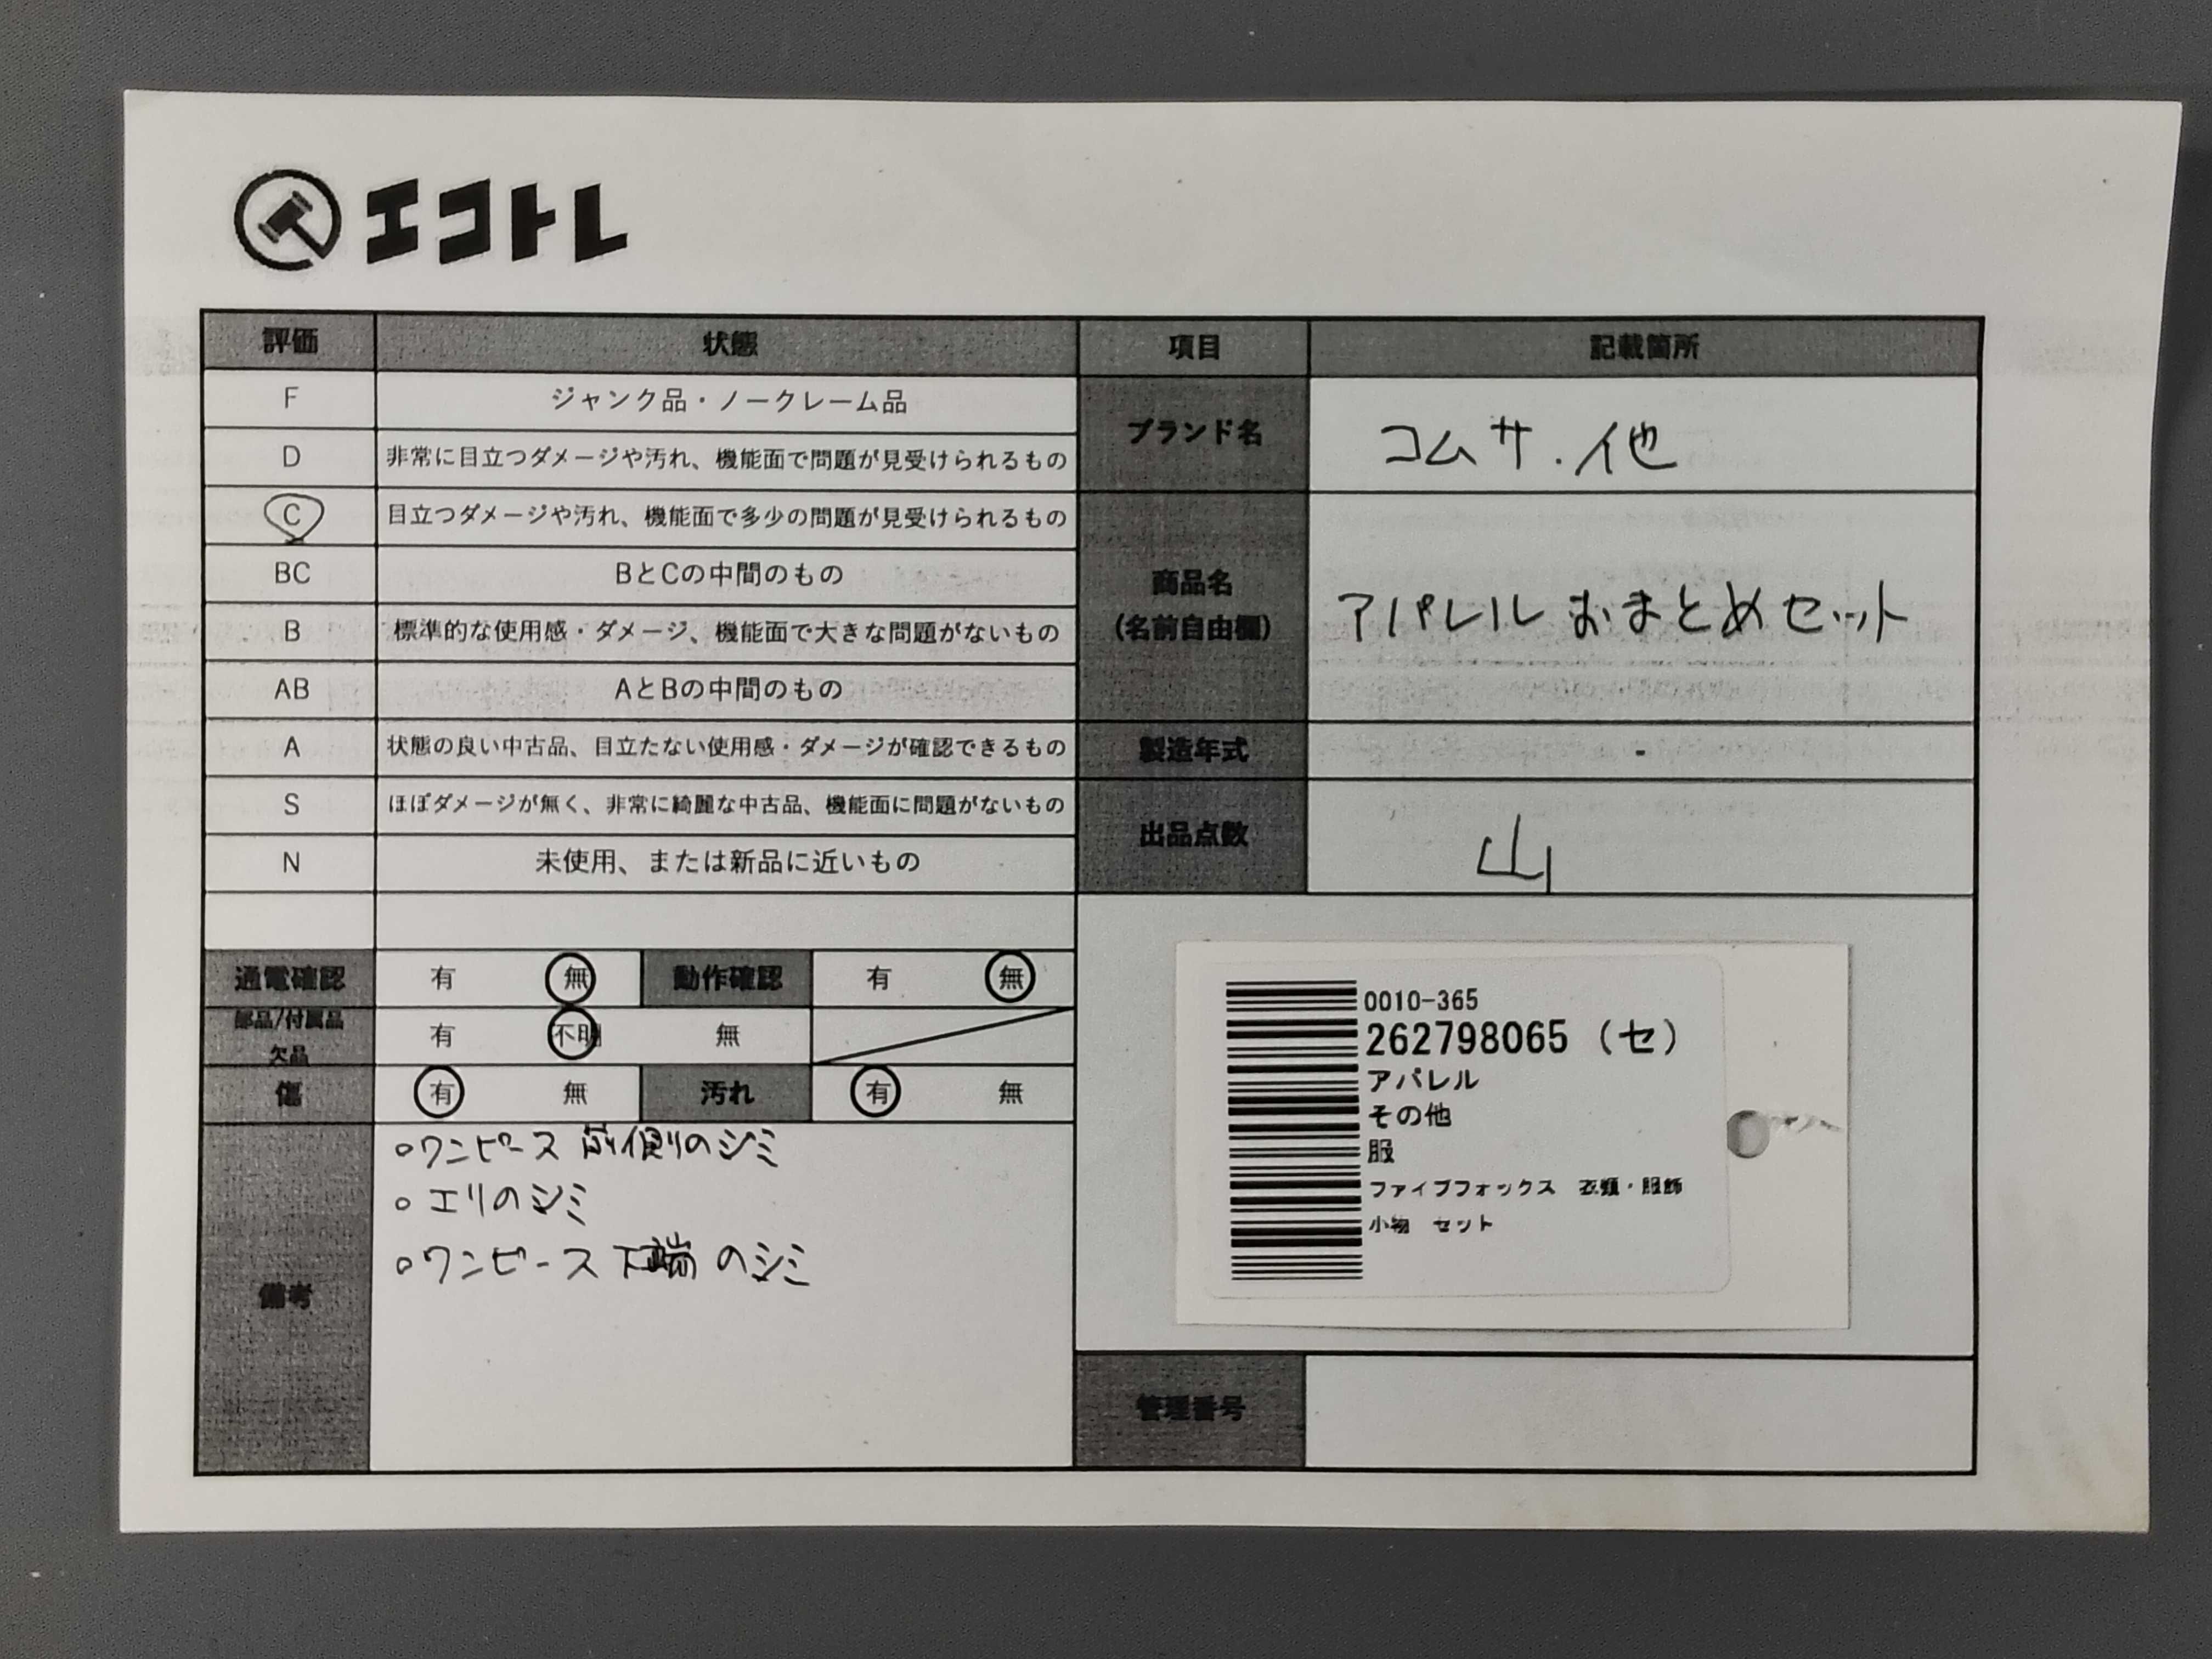 エコトレ
評価 状態 項目 記載箇所
F ジャンク品・ノークレーム品
D 非常に目立つダメージや汚れ、機能面で問題が見受けられるもの
C 目立つダメージや汚れ、機能面で多少の問題が見受けられるもの
BC BとCの中間のもの
B 標準的な使用感・ダメージ、機能面で大きな問題がないもの
AB AとBの中間のもの
A 状態の良い中古品、目立たない使用感・ダメージが確認できるもの
S ほぼダメージが無く、非常に綺麗な中古品、機能面に問題がないもの
N 未使用、または新品に近いもの
ブランド名 コムサ.他
商品名
(名前自由欄) アパレルおまとめセット
製造年式 -
出品点数 山
通電確認 有 無 動作確認 有 無
部品/付属品
欠品 有 不明 無
傷 有 無 汚れ 有 無
備考
○ワンピース 前側のシミ
○エリのシミ
○ワンピース下端のシミ
0010-365
262798065 (セ)
アパレル
その他
服
ファイブフォックス 衣類・服飾
小物 セット
管理番号